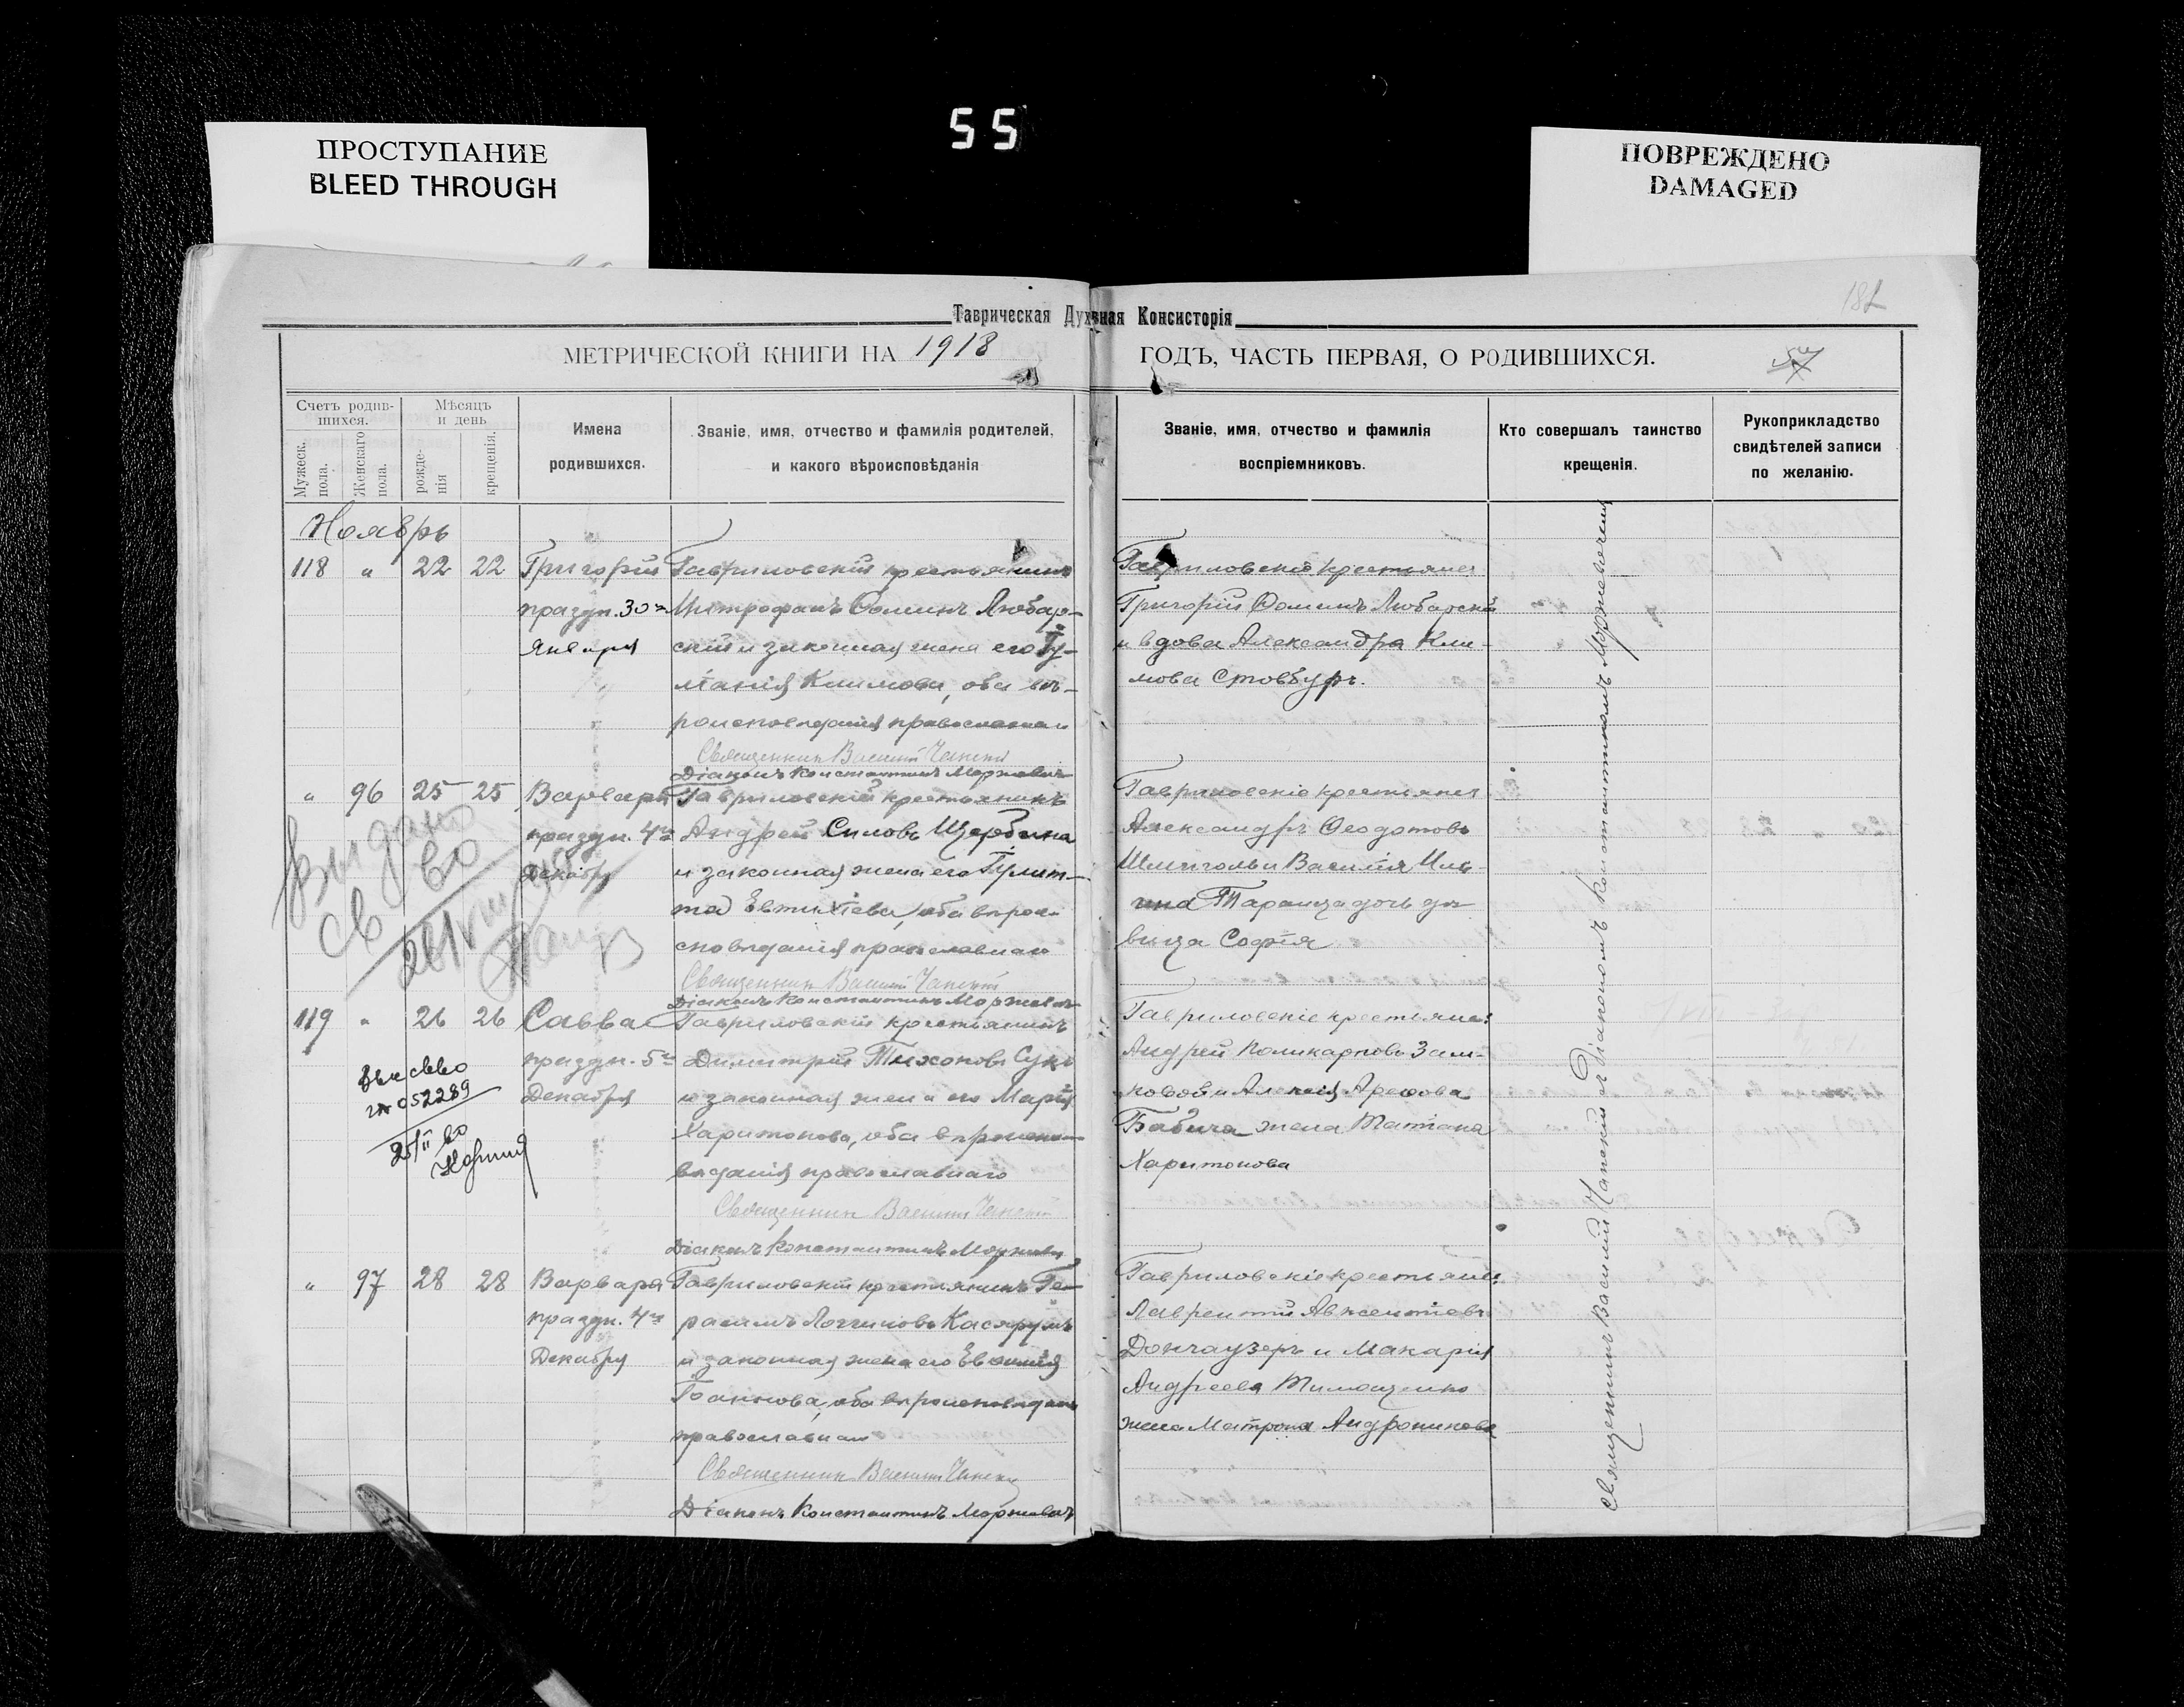 55
ПРОСТУПАНИЕ
BLEED THROUGH
ПОВРЕЖДЕНО
DAMAGED
181
Таврическая Духвная Консисторія
МЕТРИЧЕСКОЙ КНИГИ НА 1918
ГОДЪ, ЧАСТЬ ПЕРВАЯ, О РОДИВШИХСЯ.
57
Счетъ родив-
шихся.
Мужеск.
пола.
Женскаго
пола.
Мѣсяцъ
и день
рожде-
нія
крещенія.
Имена
родившихся.
Званіе, имя, отчество и фамилія родителей,
и какого вѣроисповѣданія
Званіе, имя, отчество и фамилія
воспріемниковъ.
Кто совершалъ таинство
крещенія.
Рукоприкладство
свидѣтелей записи
по желанію.
Ноябрь
118 " 22 22 Григорій
праздн. 30го
Января
Гавриловскій крестьянинъ
Митрофанъ Ѳоминъ Любар-
скій и законная жена его Іу-
ліанія Климова, оба вѣ-
роисповѣданія православнаго
Священникъ Василій Чапскій
Діаконъ Константинъ Моржевичъ
Гавриловскіе крестьяне:
Григорій Ѳоминъ Любарскій
и вдова Александра Кли-
мова Стовбуръ.
" 96 25 25 Варвара
праздн. 4го
Декабря
Гавриловскій крестьянинъ
Андрей Силовъ Щербина
и законная жена его Іулит-
та Евтихіева, оба вѣрои-
сповѣданія православнаго
Священникъ Василій Чапскій
Діаконъ Константинъ Моржевичъ
Гавриловскіе крестьяне
Александръ Ѳеодотовъ
и Василія Иль-
ина дочь дѣ-
вица Софія
Выдано
св во
119 " 26 26 Савва
праздн. 5го
Декабря
Гавриловскій крестьянинъ
Димитрій Тихоновъ
и законная жена его Марія
Харитонова, оба вѣроиспо-
вѣданія православнаго
Священникъ Василій Чапскій
Діаконъ Константинъ Моржевичъ
Гавриловскіе крестьяне:
Андрей Поликарповъ Зам-
ковой и Алексія
Бабича жена Татіана
Харитонова
052289
" 97 28 28 Варвара
праздн. 4го
Декабря
Гавриловскій крестьянинъ Ге-
расимъ Логгиновъ Касярумъ
и законная жена его Евѳимія
Іоаннова, оба вѣроисповѣданія
православнаго
Священникъ Василій Чапскій
Діаконъ Константинъ Моржевичъ
Гавриловскіе крестьяне:
Лаврентій Авксентіевъ
Дончаузеръ и Макарія
Андреева Тимощенко
жена Матрона Андроникова
Священникъ Василій Чапскій съ Діакономъ Константиномъ Моржевичемъ